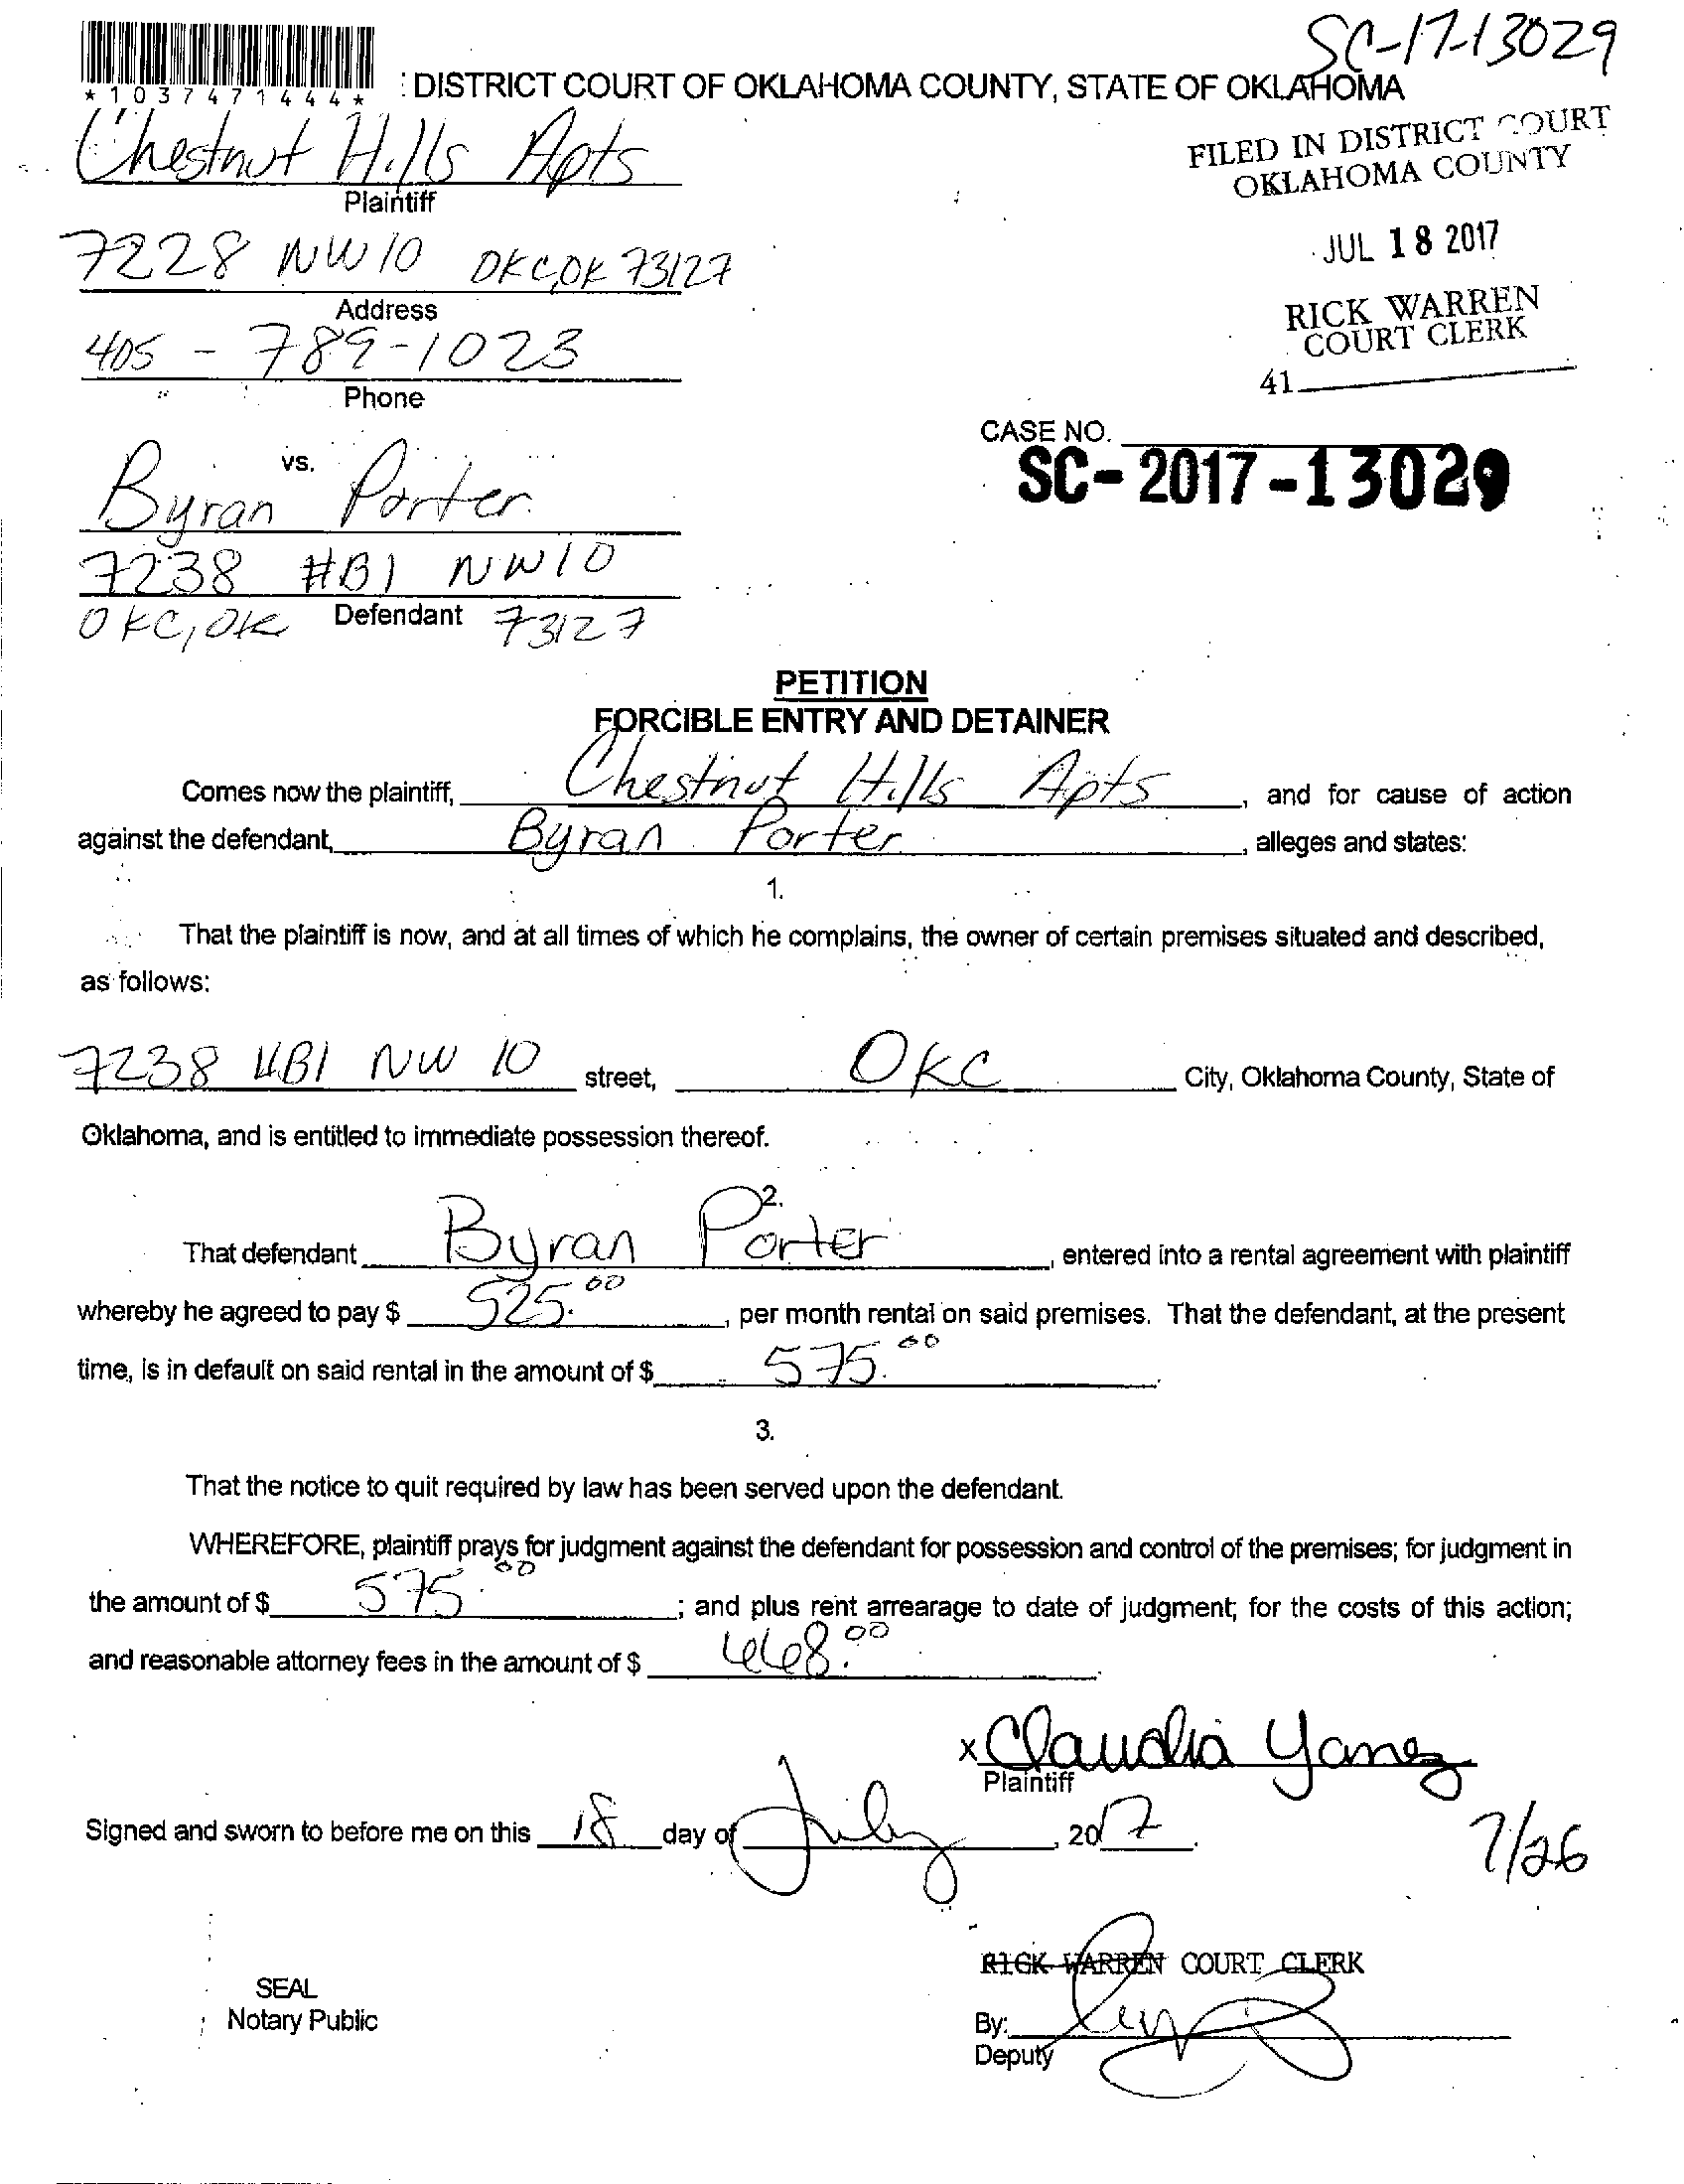 SC-17-13029
*1037471444*
: DISTRICT COURT OF OKLAHOMA COUNTY, STATE OF OKLAHOMA
Chestnut Hills Apts
Plaintiff
FILED IN DISTRICT COURT
OKLAHOMA COUNTY
7228 NW 10 OKC, OK 73127
Address
JUL 18 2017
405 - 789-1023
Phone
RICK WARREN
COURT CLERK
41
CASE NO.
SC-2017-13029
vs.
Byran Porter
7238 #B1 NW 10
Defendant
OKC, OK 73127
PETITION
FORCIBLE ENTRY AND DETAINER
Comes now the plaintiff, Chestnut Hills Apts, and for cause of action
against the defendant, Byran Porter, alleges and states:
1.
That the plaintiff is now, and at all times of which he complains, the owner of certain premises situated and described,
as follows:
7238 #B1 NW 10 street, OKC City, Oklahoma County, State of
Oklahoma, and is entitled to immediate possession thereof.
2.
That defendant Byran Porter, entered into a rental agreement with plaintiff
whereby he agreed to pay $ 525.00, per month rental on said premises. That the defendant, at the present
time, is in default on said rental in the amount of $ 575.00.
3.
That the notice to quit required by law has been served upon the defendant.
WHEREFORE, plaintiff prays for judgment against the defendant for possession and control of the premises; for judgment in
the amount of $ 575.00; and plus rent arrearage to date of judgment; for the costs of this action;
and reasonable attorney fees in the amount of $ .00.
x Claudia Yanez
Plaintiff
Signed and sworn to before me on this 18 day of July, 2017.
7/26
RICK WARREN COURT CLERK
SEAL
Notary Public
By:
Deputy